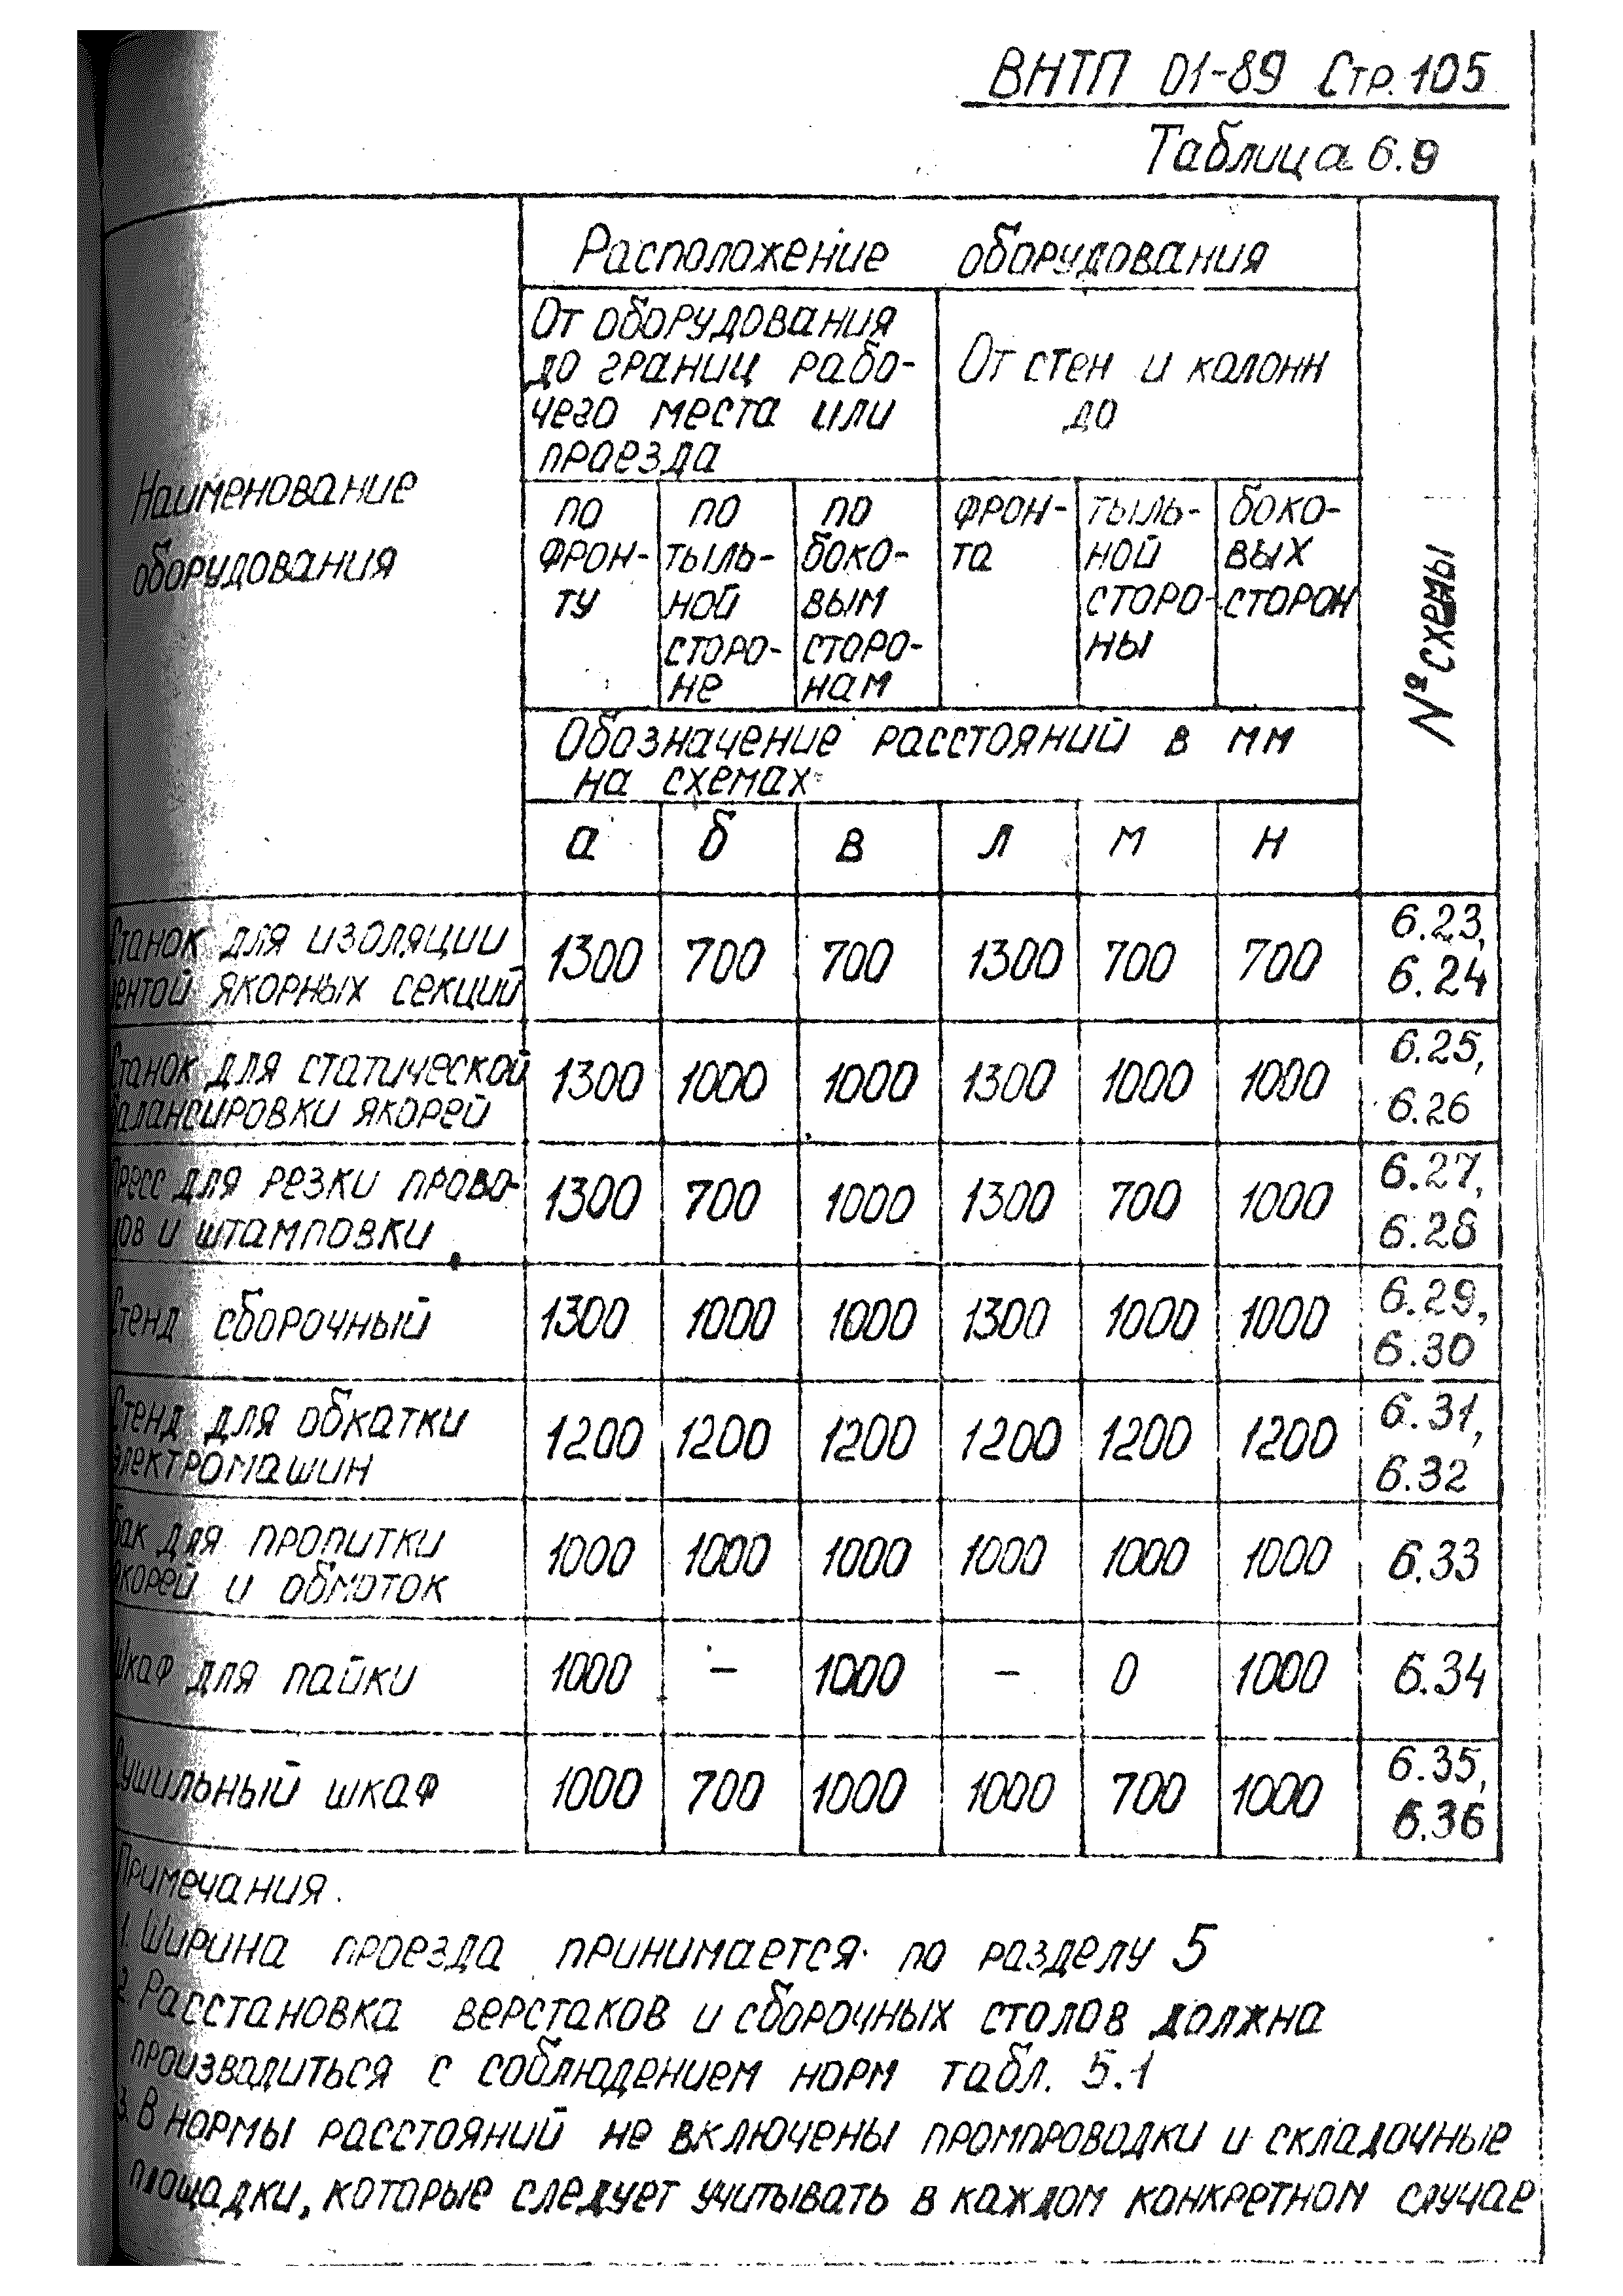 ВНТП 01-89 Стр. 105
Таблица 6.9
Наименование
оборудования
Расположение оборудования
№ схемы
От оборудования
до границ рабо-
чего места или
проезда
От стен и колонн
до
по
фрон-
ту
по
тыль-
ной
сторо-
не
по
боко-
вым
сторо-
нам
фрон-
та
тыль-
ной
сторо-
ны
боко-
вых
сторон
Обозначение расстояний в мм
на схемах
а б в л м н
Станок для изоляции
лентой якорных секций
1300 700 700 1300 700 700 6.23,
6.24
Станок для статической
балансировки якорей
1300 1000 1000 1300 1000 1000 6.25,
6.26
Пресс для резки прово-
дов и штамповки
1300 700 1000 1300 700 1000 6.27,
6.28
Стенд сборочный
1300 1000 1000 1300 1000 1000 6.29,
6.30
Стенд для обкатки
электромашин
1200 1200 1200 1200 1200 1200 6.31,
6.32
Бак для пропитки
якорей и обмоток
1000 1000 1000 1000 1000 1000 6.33
Шкаф для пайки
1000 – 1000 – 0 1000 6.34
Сушильный шкаф
1000 700 1000 1000 700 1000 6.35,
6.36
Примечания.
1. Ширина проезда принимается по разделу 5
2. Расстановка верстаков и сборочных столов должна
производиться с соблюдением норм табл. 5.1
3. В нормы расстояний не включены промпроводки и складочные
площадки, которые следует учитывать в каждом конкретном случае